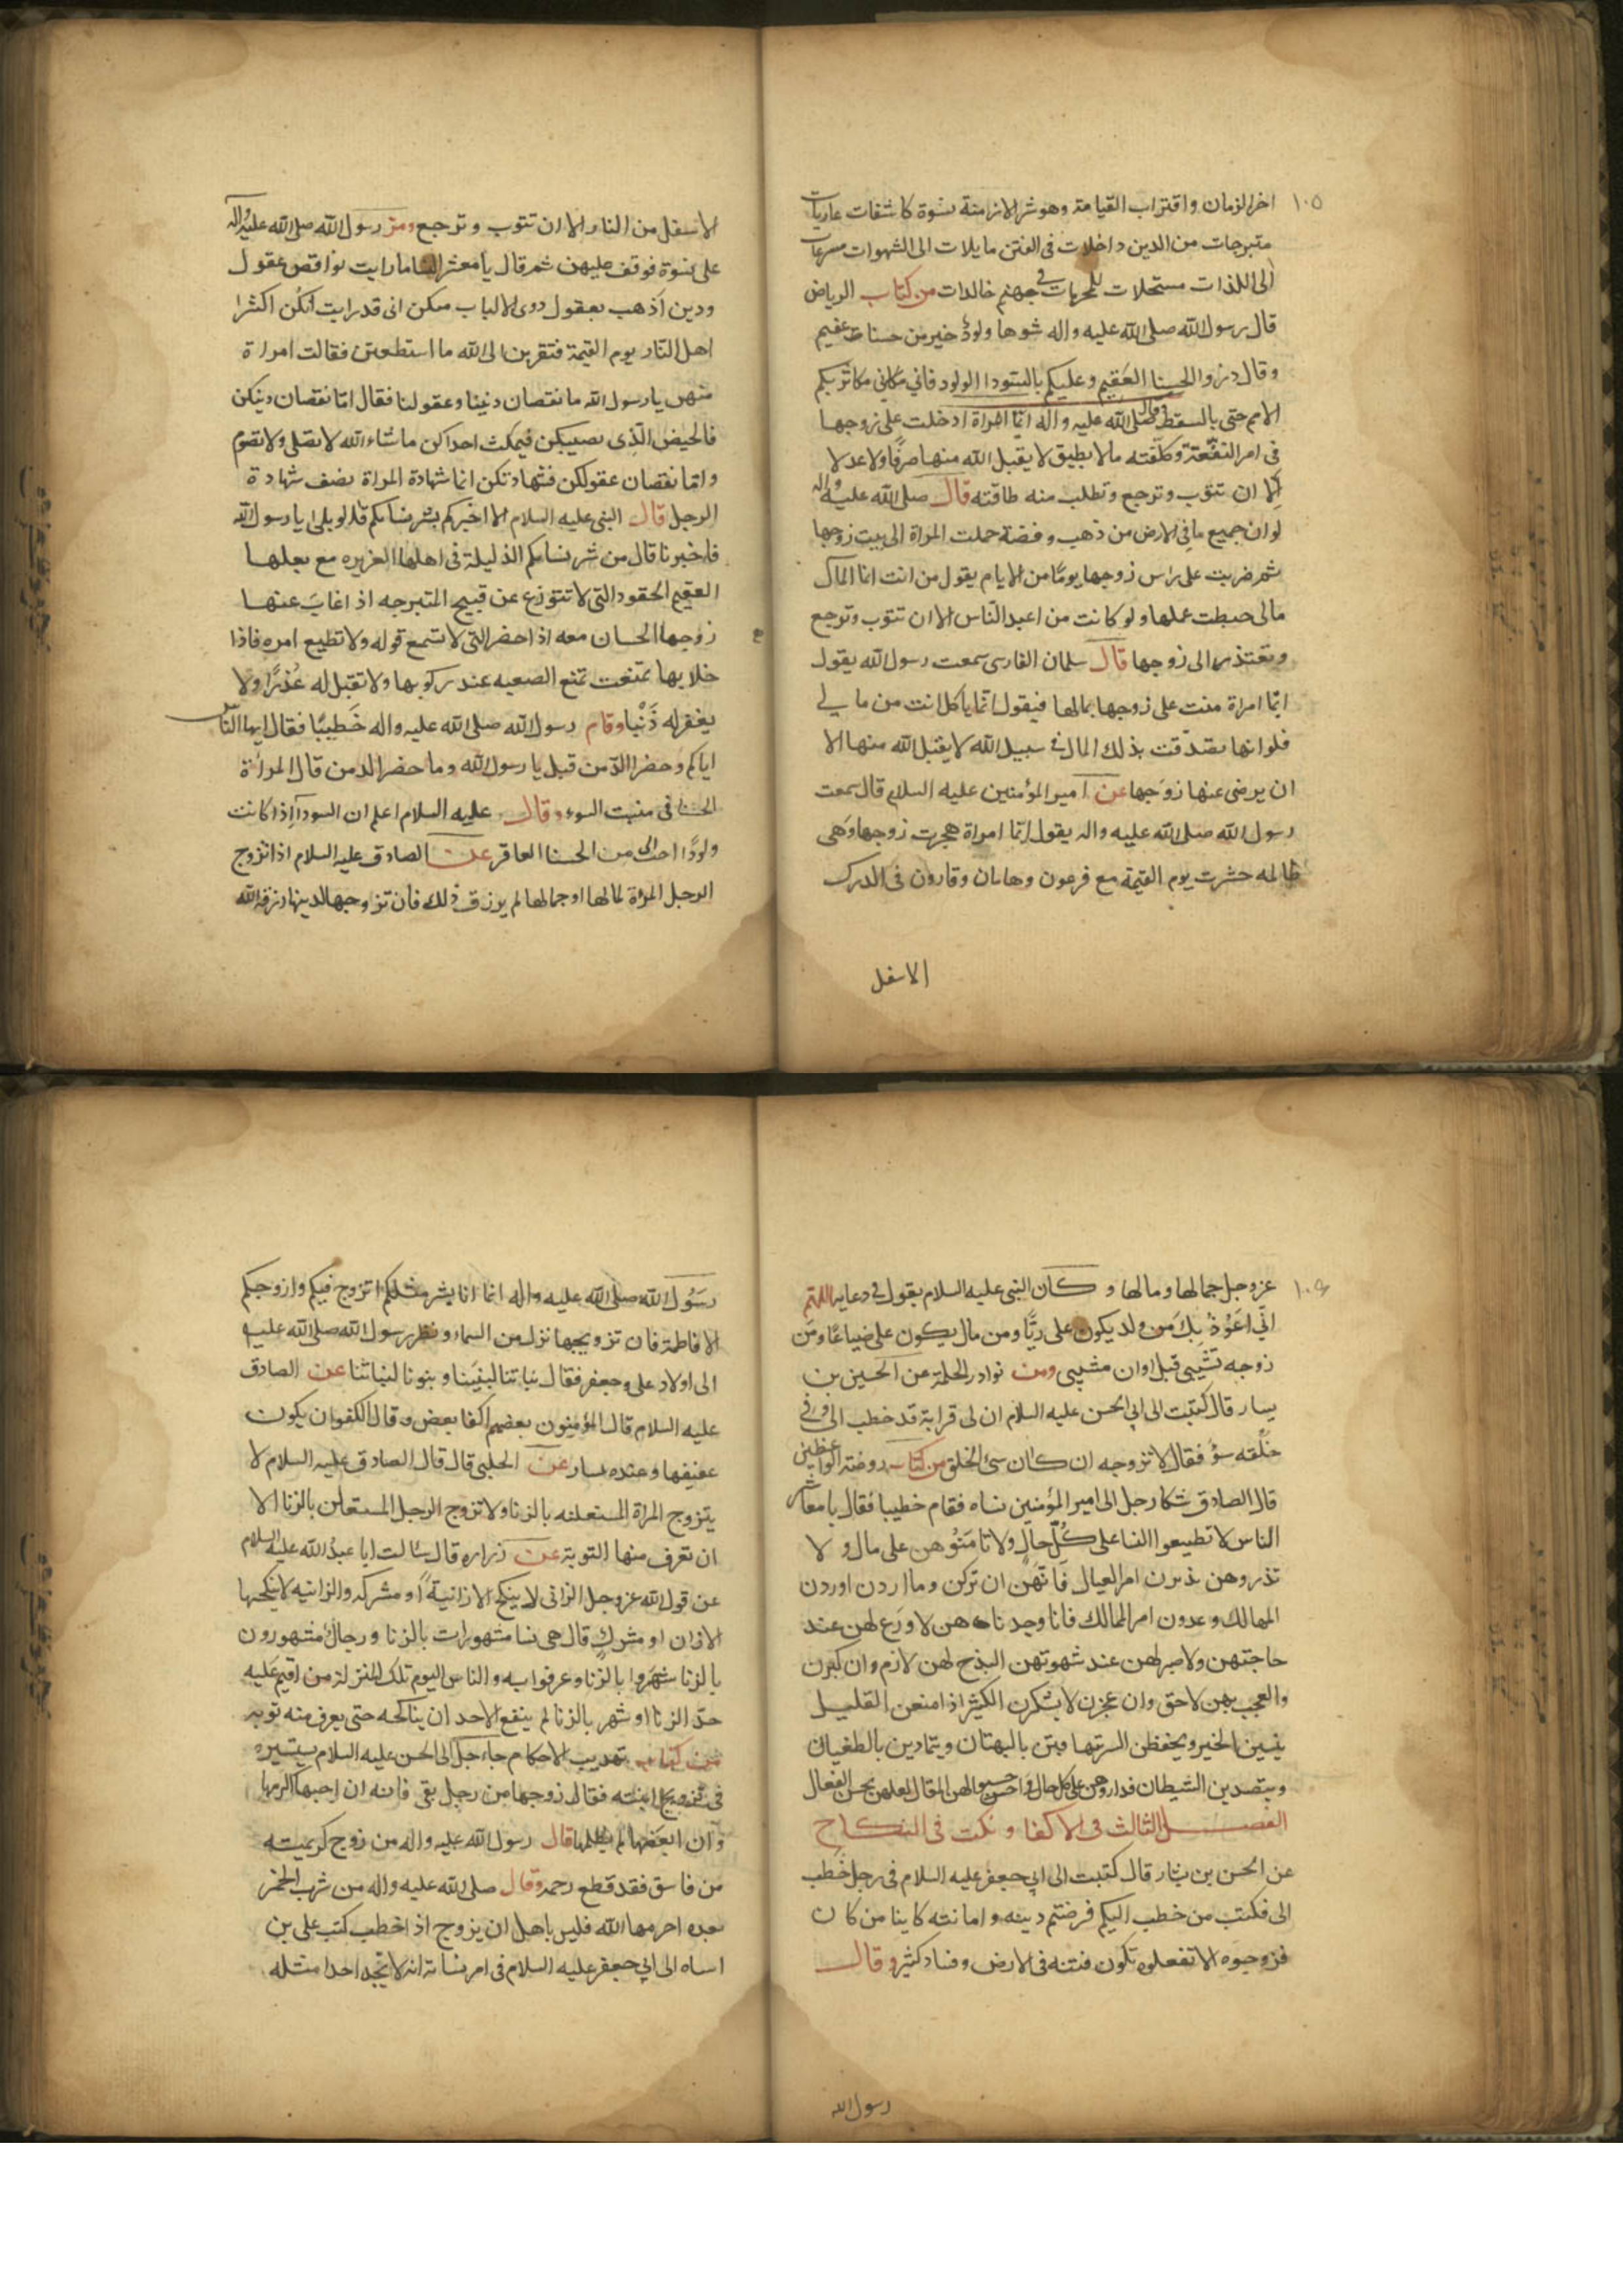 ١٠٥
اخر الزمان واقتراب القيامة وهو شر الازمنة نسوة كاشفات عاريات
متبرجات من الدين داخلات فى الفتن مايلات الى الشهوات مسرعات
الى اللذات مستحلات للمحرمات فى جهنم خالدات من كتاب الرياض
قال رسول الله صلى الله عليه واله شوها ولودٌ خير من حسناء عقيم
وقال ذروا الحسنا العَقيم وعليكم بالسودا الولود فانى مكاثر بكم
الامم حتى بالسقط وقال صلى الله عليه واله ايّما امراة ادخلت على زوجها
فى امر النفقة وكلّفته ما لا يطيق لا يقبل الله منها صرفًا ولا عدلا
الا ان تتوب وترجع وتطلب منه طاقته قال صلى الله عليه واله
لو ان جميع ما فى الارض من ذهب وفضة حملت المراة الى بيت زوجها
ثم ضربت على راس زوجها يومًا من الايام يقول من انت انما المال
مالى حبطت عملها ولو كانت من اعبد النّاس الا ان تتوب وترجع
وتعتذر الى زوجها قال سلمان الفارسى سمعت رسول الله يقول
ايّما امراة منت على زوجها بمالها فيقول انّما ياكل انت من مالى
فلو انها تصدّقت بذلك المال فى سبيل الله لا يقبل الله منها الا
ان يرضى عنها زوَجها عن امير المؤمنين عليه السلام قال سمعت
رسول الله صلى الله عليه واله يقول ايّما امراة هجرت زوجها وَهى
ظالمه حشرت يوم القيمة مع فرعون وهامان وقارون فى الدرك
الاسفل
الاسفل من النار الا ان تتوب وترجع ومرّ رسول الله صلى الله عليه واله
على نسوة فوقف عليهن ثم قال يا معشر النسا ما رايت نواقص عقول
ودين اذهب بعقول ذوى الالباب منكن انى قد رايت انكُن اكثرا
اهل النّار يوم القيمة فتقربن الى الله ما استطعتن فقالت امراة
منهن يا رسول الله ما نقصان ديننا وعقولنا فقال امّا نقصان دينكن
فالحيض الّذِى يصيبكن فيمكث احداكن ما شاء الله لا تصلى ولا تصوم
وامّا نقصان عقولكن فشهادتكن انما شهادة المراة نصف شهادة
الرجل قال النبى عليه السلام الا اخبركم بشر نسائكم قالوا بلى يا رسول الله
فاخبرنا قال من شر نسائكم الذليلة فى اهلها العزيزه مع بعلها
العقيم الحقود التى لا تتورّع عن قبيح المتبرجه اذا غابَ عنها
زوجها الحسان معه اذا حضر التى لا تسمع قوله ولا تطيع امره فاذا
خلا بها تمنّعت تمنع الصعبه عند ركوبها ولا تقبل له عُذرًا ولا
يغفر له ذَنْبا وقام رسول الله صلى الله عليه واله خَطيبًا فقال ايها النّاس
اياكم وخضرا الدّمن قيل يا رسول الله وما خضرا الدمن قال المراة
الحسنا فى منبت السوء وقال عليه السلام اعلم ان السودآ اذا كانت
ولودًا احبّ الى من الحسنا العاقر عن الصادق عليه السلام اذا تزوج
الرجل المرأة لمالها او جمالها لم يرزق ذلك فان تزوجها لدينها رزقه الله
١٠٦
عز وجل جمالها ومالها و كان النبى عليه السلام يقول فى دعايه اللهّم
انّى اعَوُذ بِكَ من ولد يكون على ربًّا ومن مال يكون على ضياعًا ومن
زوجه تشيّبى قبل اوان مشيبى ومن نوادر الحكمة عن الحسين بن
يسار قال كتبت الى ابى الحسن عليه السلام ان لى قرابة قد خطب الى وفى
خلقه سؤ فقال لا تزوجه ان كان سئ الخلق من كتاب روضة الواعظين
قال الصادق شكا رجل الى امير المؤمنين نساه فقام خطيبا فقال يا معاشر
الناس لا تطيعوا النسا على كُلّ حالٍ ولا تامَنُوهن على مال ولا
تذروهن يذبرن امر العيال فَانّهَن ان تركن وما اردن اوردن
المهالك وعدون امر المالك فانا وجدناهن لا ورَع لهن عند
حاجتهن ولا صبر لهن عند شهوتهن البذخ لهن لازم وان كبرن
والعجب بهن لاحق وان عجزن لا يشكرن الكثير اذا منعن القليل
ينسين الخير ويحفظن الشر يتهافتن بالبهتان ويتمادين بالطغيان
ويتصدين الشيطان فداروهن على كل حال واحسنوا لهن المقال لعلهن يحسن الفعال
الفصل الثالث فى الاكفا ونكت فى النكاح
عن الحسن بن بشار قال كتبت الى ابى جعفر عليه السلام فى رجل خطب
الى فكتب من خطب اليكم فرضيتم دينه وامانته كاينا من كان
فزوجوه الا تفعلوه تكون فتنه فى الارض وفساد كثير وقال
رسول الله
رسَوُل الله صلى الله عليه واله انما انا بشر مثلكم اتزوج فيكم وازوجكم
الا فاطمة فان تزويجها نزل من السماء ونظر رسول الله صلى الله عليه
الى اولاد على وجعفر فقال بناتنا لبنينا وبنونا لبناتنا عن الصادق
عليه السلام قال المؤمنون بعضهم اكفا بعض وقال الكفو ان يكون
عفيفا وعنده يسار عن الحلبى قال قال الصادق عليه السلام لا
يتزوج المراة المستعلنه بالزنا ولا تزوج الرجل المستعلن بالزنا الا
ان تعرف منهما التوبة عن زراره قال سالت ابا عبدُ الله عليه السلام
عن قول الله عز وجل الزانى لا ينكح الا زانيةً او مشركه والزانيه لا ينكحها
الا زان او مشركٍ قال هى نسا مشهورات بالزنا ورجالٌ مشهورون
بالزنا شهروا بالزنا وعرفوا به والناس اليوم تلك المنزلة من اقيم عَليه
حدّ الزنا او شهر بالزنا لم ينبغ لاحد ان يناكحه حتى يعرف منه توبه
من كتاب تهذيب الاحكام جاء رجل الى الحسن عليه السلام يستشيره
فى تزويج ابنته فقال زوجها من رجل تقى فانه ان احبها اكرمها
وان ابغضها لم يظلمها قال رسول الله عليه واله من زوج كريمته
من فاسق فقد قطع رحمه وقال صلى الله عليه واله من شرب الخمر
بعد ما حرمها الله فليس باهل ان يزوج اذا خطب كتب على بن
اسباه الى ابى جعفر عليه السلام فى امر بناته انه لا يجد احدا مثله